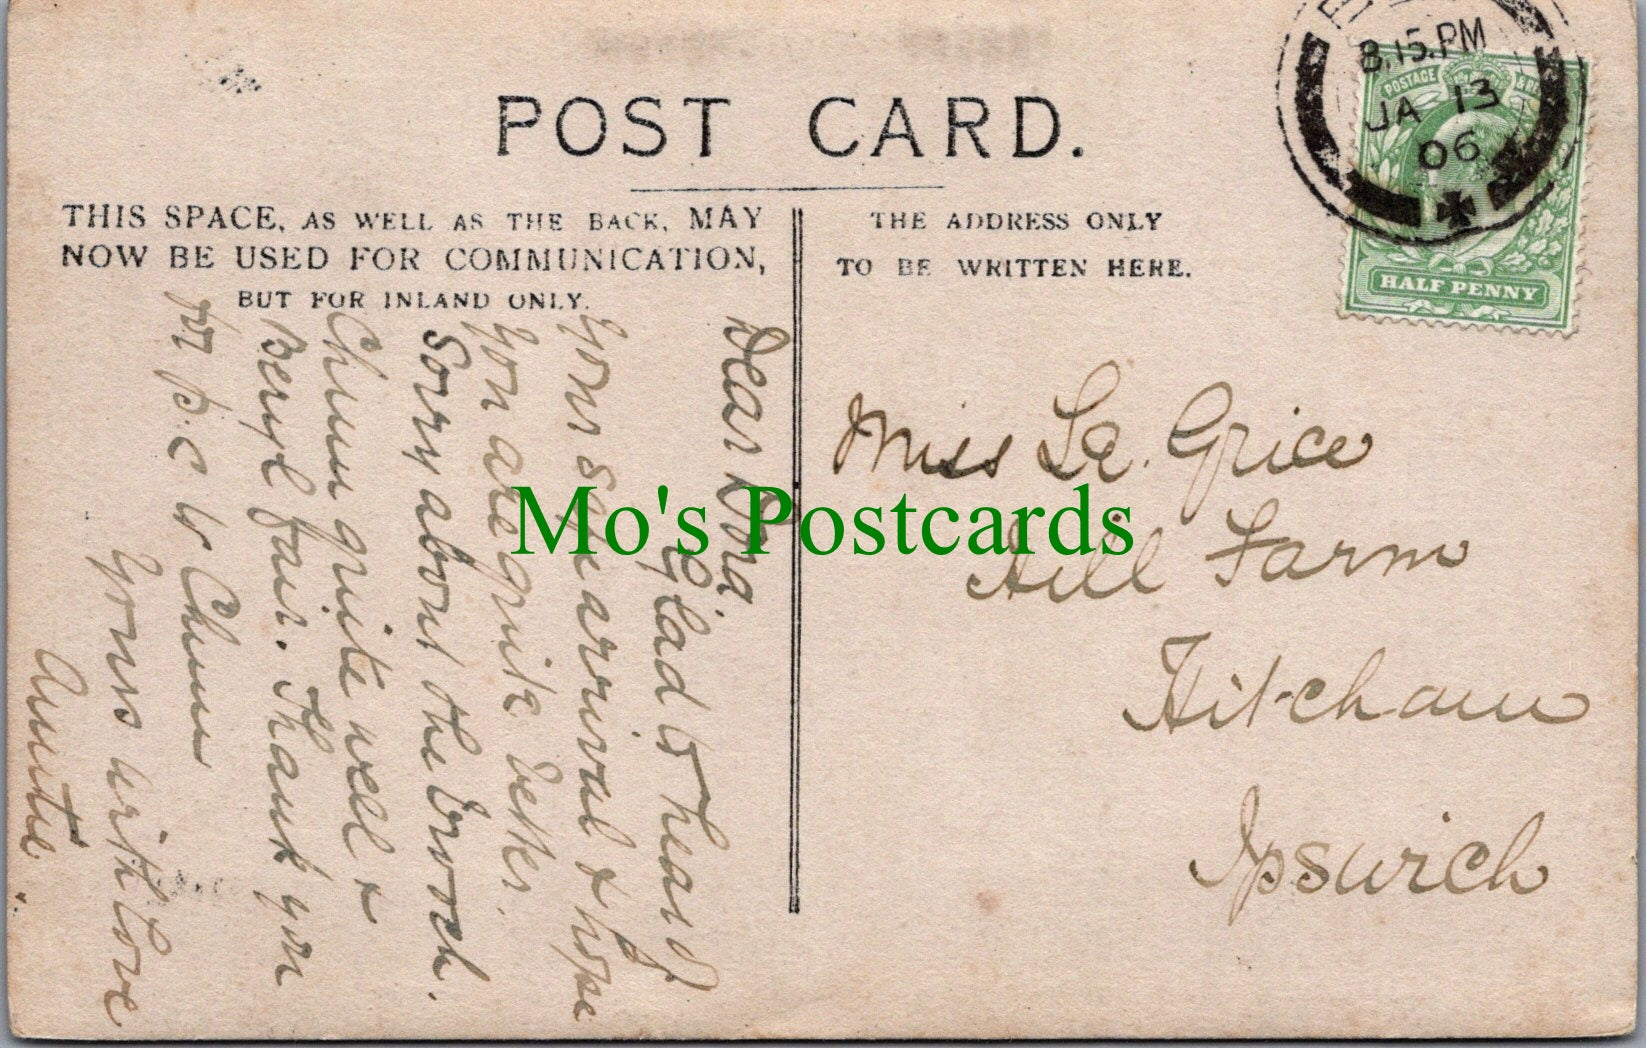 POST CARD.
THIS SPACE, AS WELL AS THE BACK, MAY
NOW BE USED FOR COMMUNICATION,
BUT FOR INLAND ONLY.
THE ADDRESS ONLY
TO BE WRITTEN HERE.
8.15.PM
JA 13
06
POSTAGE
HALF PENNY
Dear Dora.
Glad to hear of
your safe arrival & hope
you are quite better.
Sorry about the brooch.
Chum quite well &
Beryl fair. Thank you
for p.c to Chum
Yours with love
Auntie.
Miss Le Grice
Hill Farm
Hitcham
Ipswich
Mo's Postcards